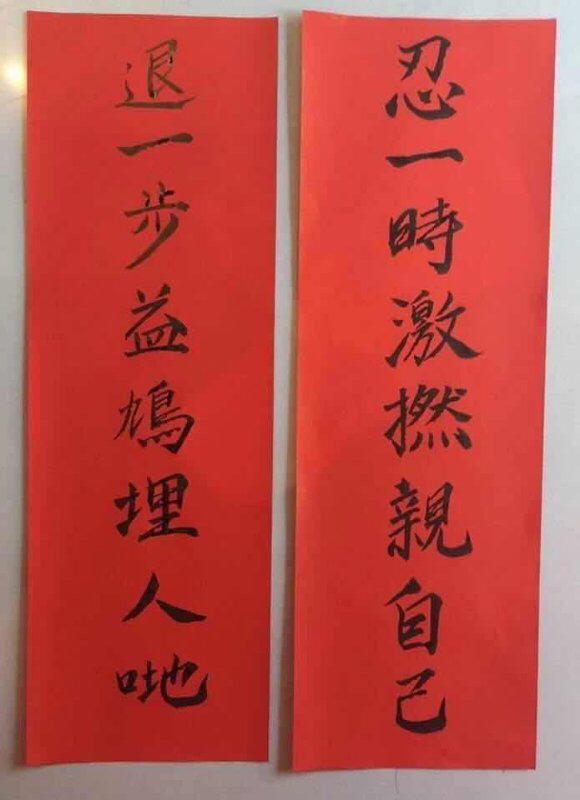 忍一時激撚親自己
退一步益鳩埋人哋